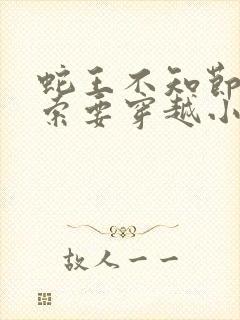 蛇王不知节
索要穿越小
故人一一